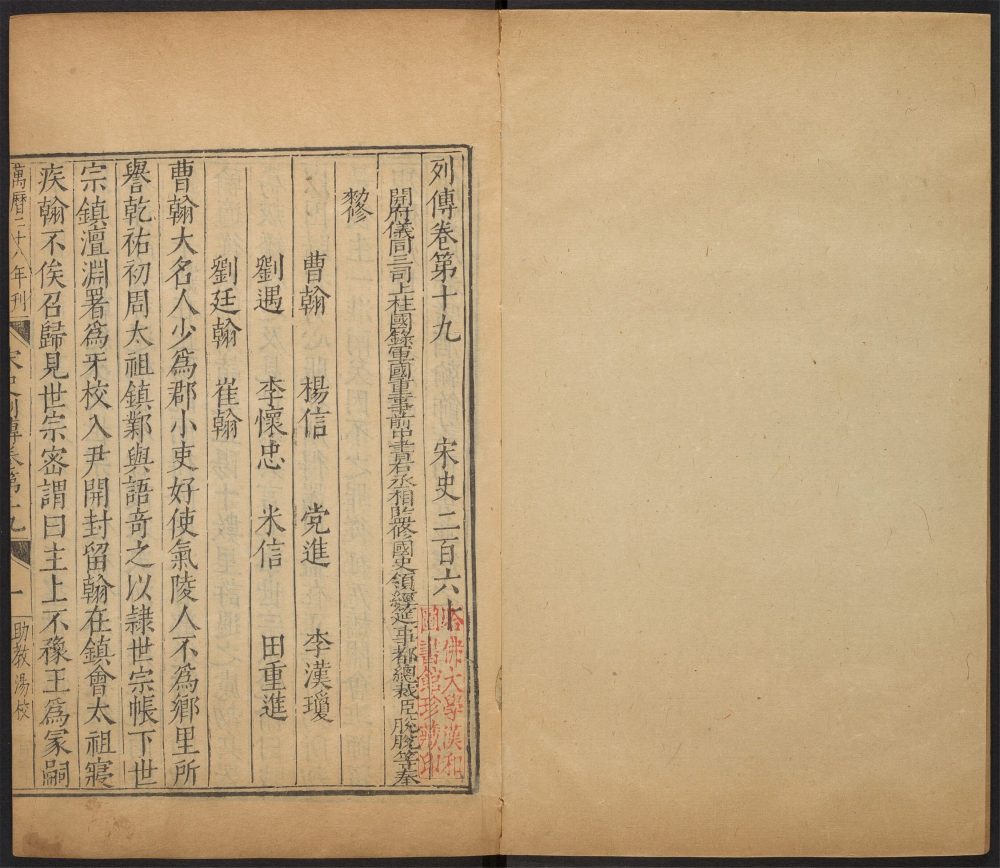 列傳卷第十九 宋史二百六十
開府儀同三司上柱國錄軍國重事前中書右丞相監修國史領經筵事都總裁臣脫脫等奉
勑修
曹翰 楊信 党進 李漢瓊
劉遇 李懷忠 米信 田重進
劉廷翰 崔翰
曹翰大名人少爲郡小吏好使氣陵人不爲鄉里所
譽乾祐初周太祖鎮鄴與語奇之以隷世宗帳下世
宗鎮澶淵署爲牙校入尹開封留翰在鎮會太祖寢
疾翰不俟召歸見世宗密謂曰主上不豫王爲冢嗣
萬曆二十八年刊
宋史列傳卷第十九
一
助教湯校
哈佛大學漢和
圖書館珍藏印